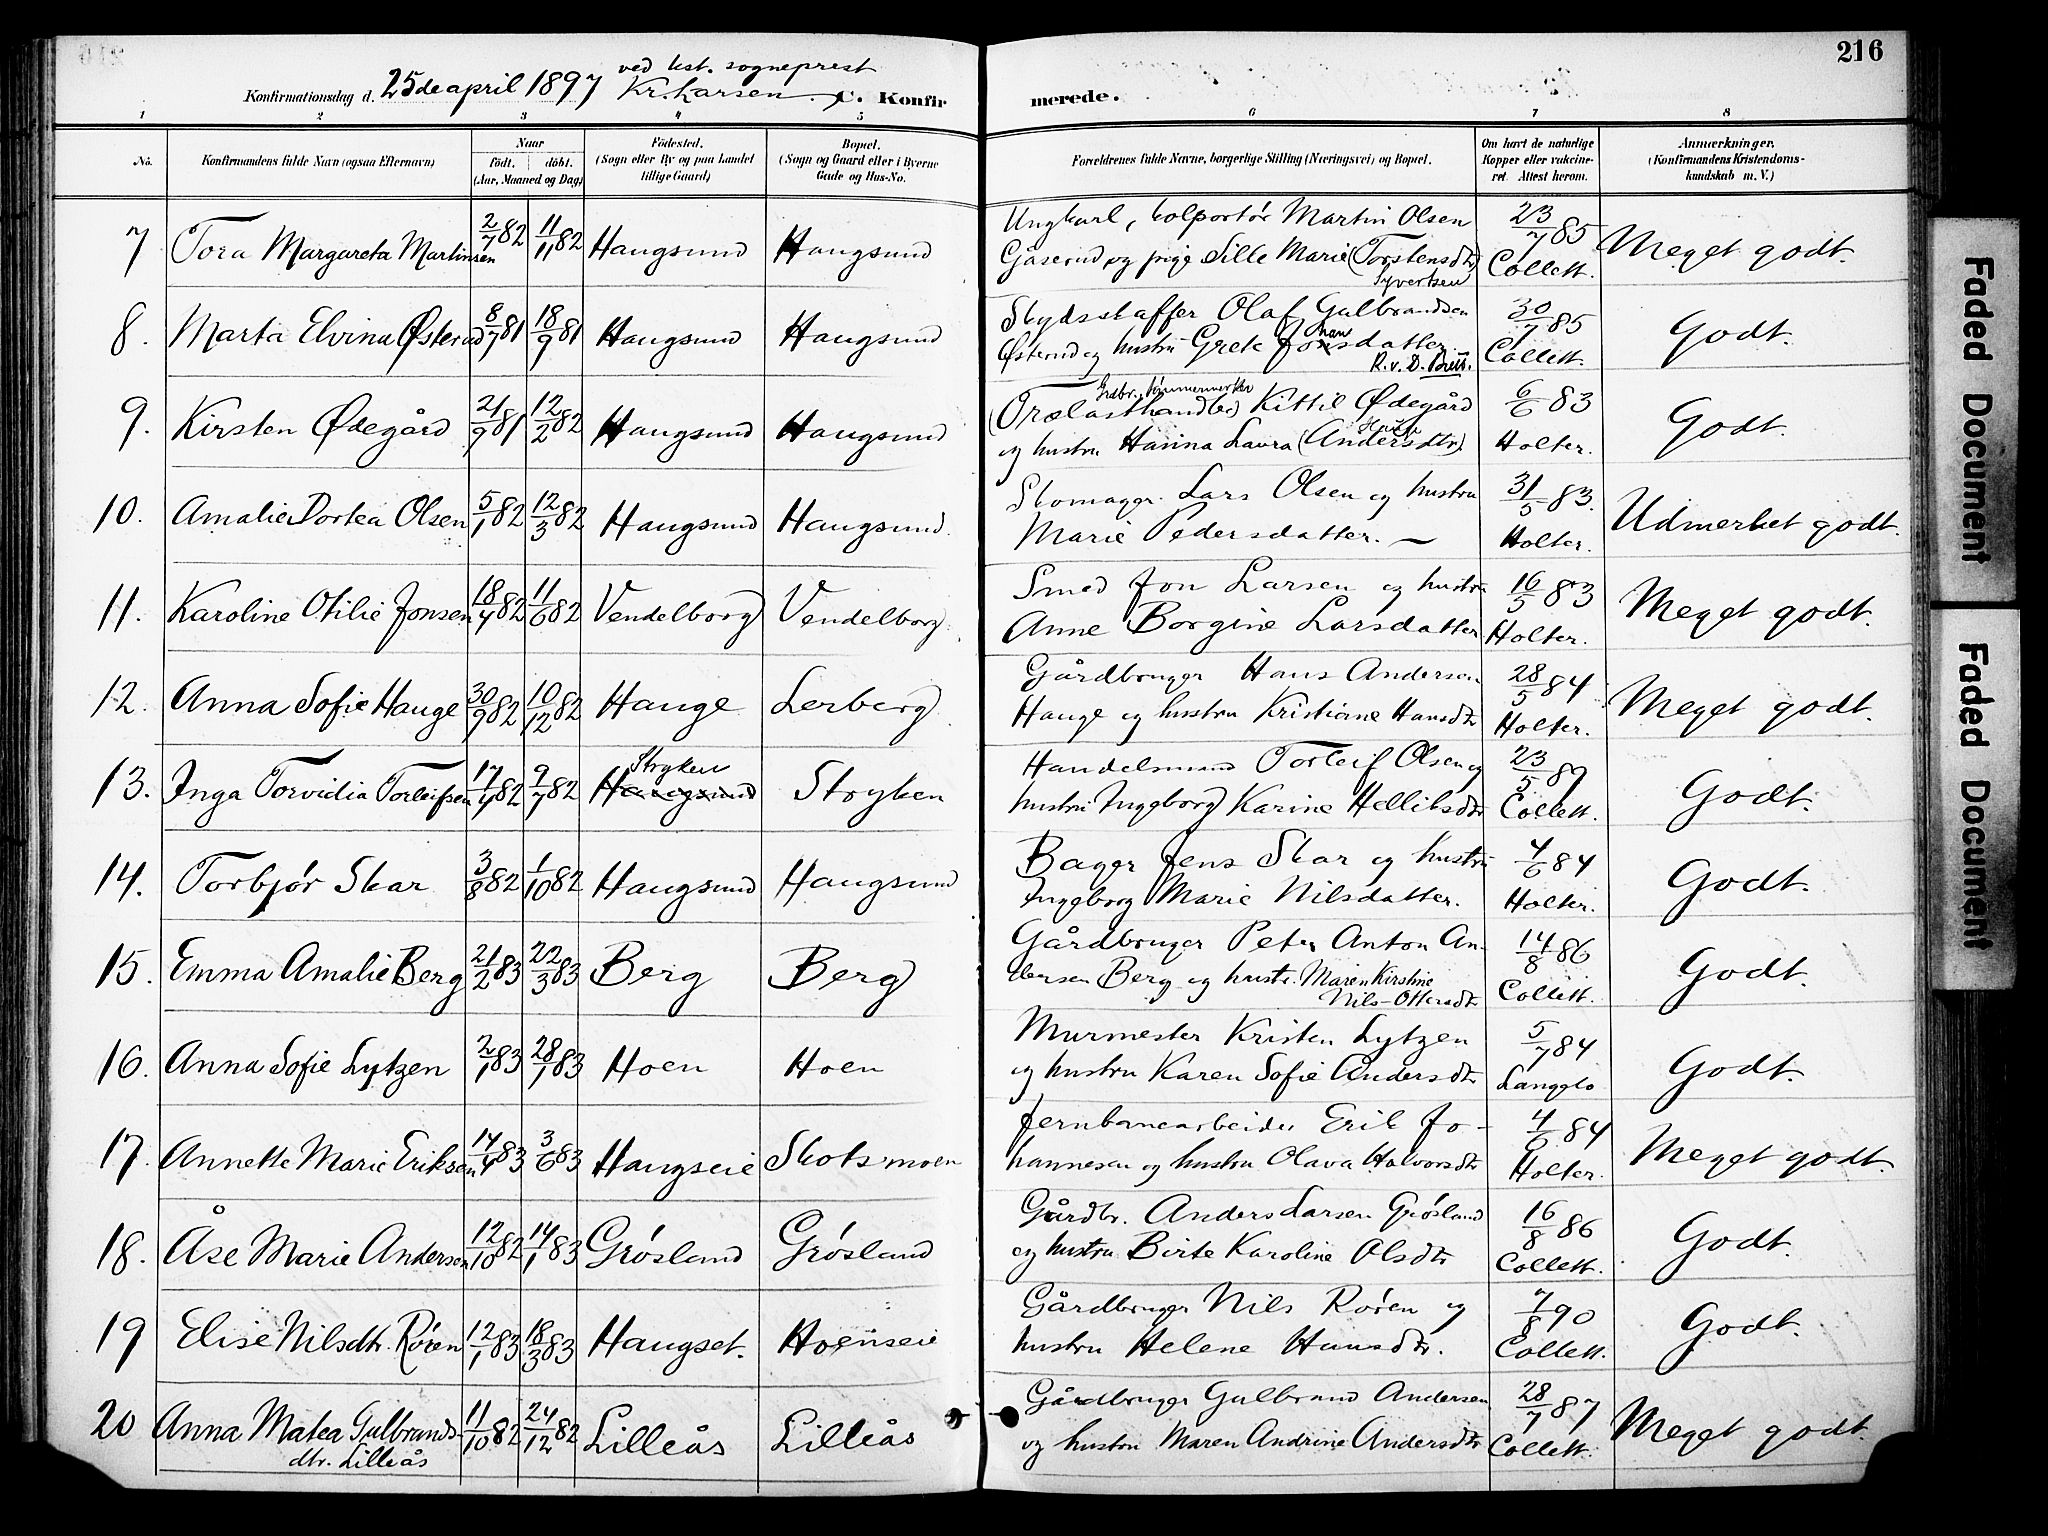 216
ved kst. sogneprest
Konfirmationsdag d. 25de april 1897 Kr. Larsen. C. Konfirmerede.
1 2 3 4 5 6 7 8
No. Konfirmandens fulde Navn (ogsaa Efternavn) Naar født. døbt. (Aar, Maaned og Dag) Fødested. (Sogn eller By og paa Landet tillige Gaard) Bopæl. (Sogn og Gaard eller i Byerne Gade og Hus-No. Forældrenes fulde Navne, borgerlige Stilling (Næringsvei) og Bopæl. Om havt de naturlige Kopper eller vakcineret. Attest herom. Anmærkninger. (Konfirmandens Kristendomskundskab m. V.)
7 Tora Margareta Martinsen 2/7 82 11/11 82 Haugsund Haugsund Ungkarl, kolportør Martin Olsen 23/7 85 Meget godt.
Gåserud og pige Sille Marie (Torstensdtr) Syvertsen Collett.
8. Marta Elvina Østerud 8/7 81 18/9 81 Haugsund Haugsund Skydsskaffer Olaf Gulbrandsen 30/7 85 Godt.
Østerud og hustru Grete Johansdatter. Collett.
R. v. D. Brev.
9. Kirsten Ødegård 21/9 81 12/2 82 Haugsund Haugsund Grdbr. tømmermerker (Trælasthandler) Kittil Ødegård 6/6 83 Godt.
og hustru Hanna Laura (Andersdtr). Holter.
10. Amalie Dortea Olsen 5/1 82 12/3 82 Haugsund Haugsund. Skomager Lars Olsen og hustru 31/5 83. Udmerket godt.
Marie Pedersdatter. — Holter.
11. Karoline Otilie Jonsen 18/4 82 11/6 82 Vendelborg Vendelborg. Smed Jon Larsen og hustru 16/5 83 Meget godt.
Anne Borgine Larsdatter Holter.
12. Anna Sofie Hauge 30/9 82 10/12 82 Hauge Lerberg Gårdbruger Hans Andersen 28/5 84 Meget godt.
Hauge og hustru Kristiane Hansdtr Holter.
13. Inga Torvidia Torleifsen 17/4 82 9/7 82 Stryken Haugsund Stryken Handelsmand Torleif Olsen og 23/5 89 Godt.
hustru Ingeborg Karine Helliksdtr Collett.
14. Torbjør Skar 3/8 82 1/10 82 Haugsund Haugsund Bager Jens Skar og hustru 4/6 84 Godt.
Ingeborg Marie Nilsdatter. Holter.
15. Emma Amalie Berg 21/2 83 22/3 83 Berg Berg Gårdbruger Peter Anton An- 14/8 86 Godt.
dersen Berg og hustr. Maren Kirstine Nils-Ottersdtr Collett.
16. Anna Sofie Lytzen 2/1 83 28/1 83 Hoen Hoen Murmester Kristen Lytzen 5/7 84 Godt.
og hustru Karen Sofie Andersdtr Langglo
17. Annette Marie Eriksen 14/4 83 3/6 83 Haugseie Skotsmoen Jernbanearbeider Erik Jo- 4/6 84 Meget godt.
hannesen og hustru Olava Halvorsdtr Holter.
18. Åse Marie Andersen 12/10 82 14/1 83 Grøsland Grøsland Gårdbr. Anders Larsen Grøsland 16/8 86 Godt.
og hustru Birte Karoline Olsdtr Collett.
19 Elise Nilsdtr. Røren 12/1 83 18/3 83 Haugset. Hoenseie Gårdbruger Nils Røren og 7/8 90 Godt.
hustru Helene Hansdtr. Collett.
20 Anna Matea Gulbrands- 11/10 82 24/12 82 Lilleås Lilleås Gårdbruger Gulbrand Andersen 28/7 87 Meget godt.
dtr. Lilleås og hustru Maren Andrine Andersdtr Collett.
Faded Document
Faded Document